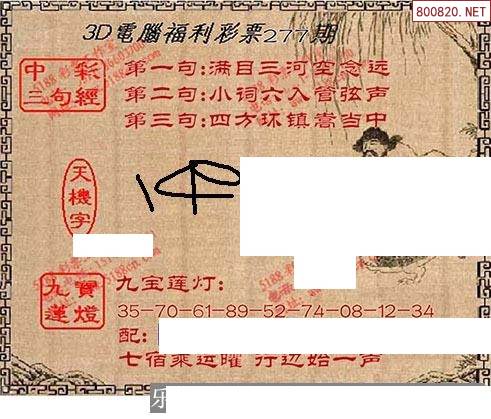 800820.NET
3D電腦福利彩票277期
中彩三句經
第一句:满目三河空念远
第二句:小词六入管弦声
第三句:四方环镇嵩当中
天機字
九寶蓮燈
九宝莲灯:
35-70-61-89-52-74-08-12-34
配:
七宿乘运曜 行边始一声
乐